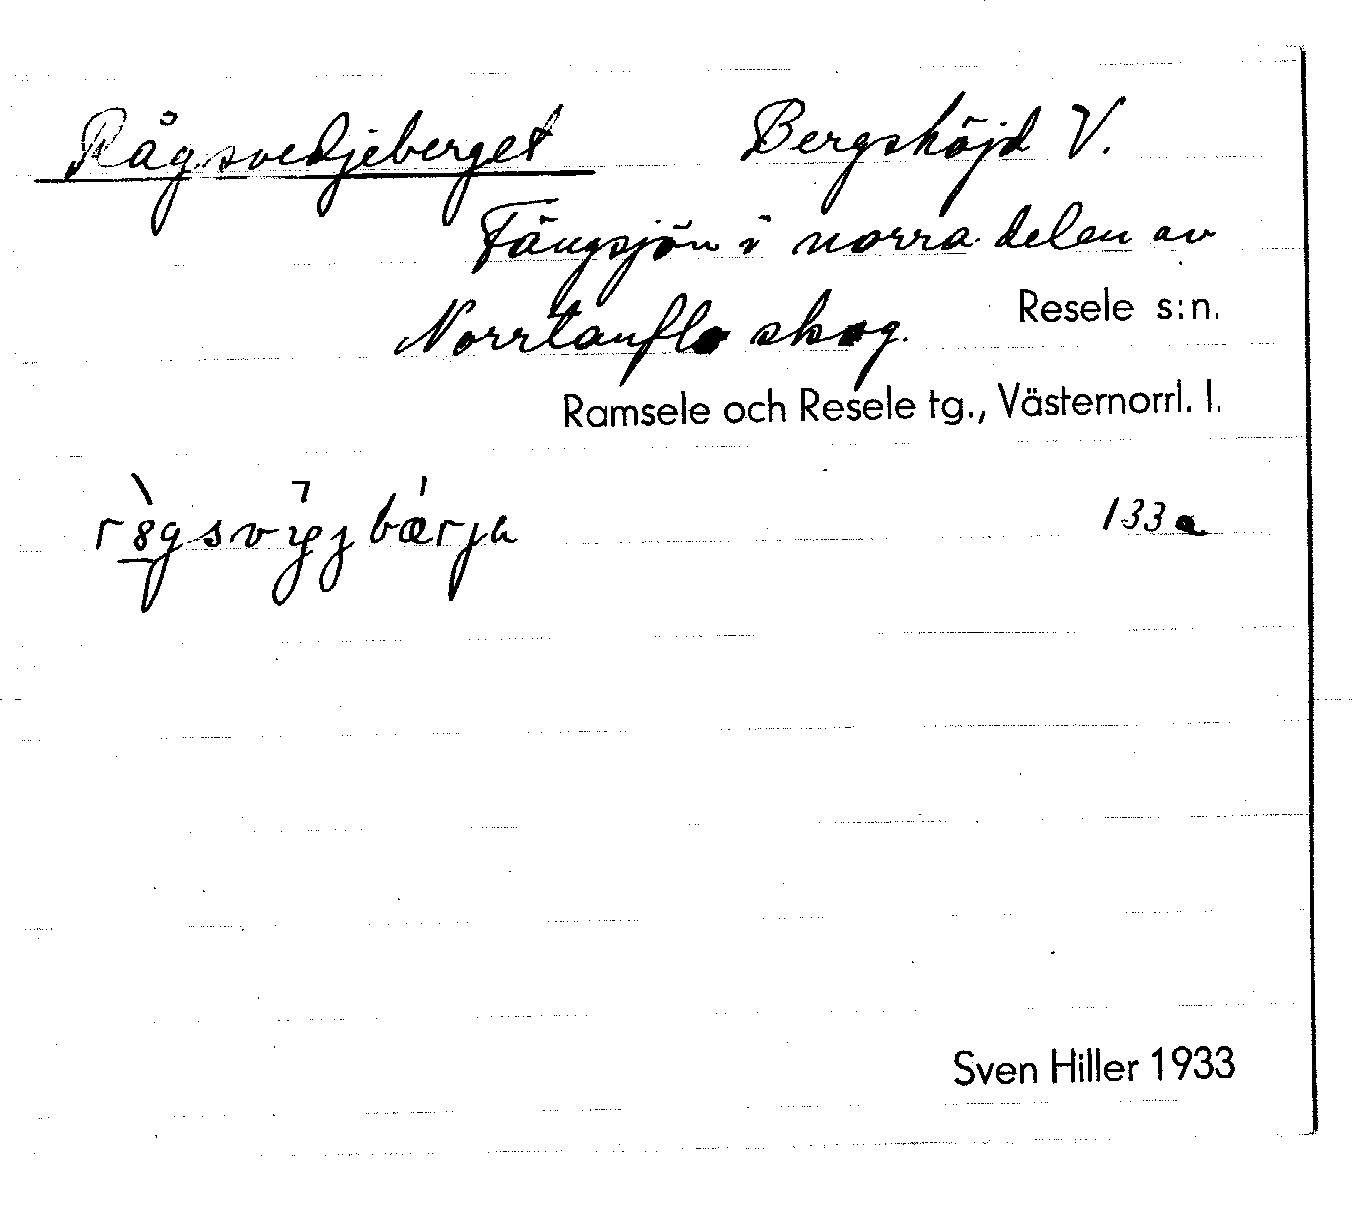 Rågsvedjeberget Bergshöjd V.
Fängsjön i norra delen av
Norrtanflo skog.
Resele s:n.
Ramsele och Resele tg., Västernorrl. l.
133a
Sven Hiller 1933